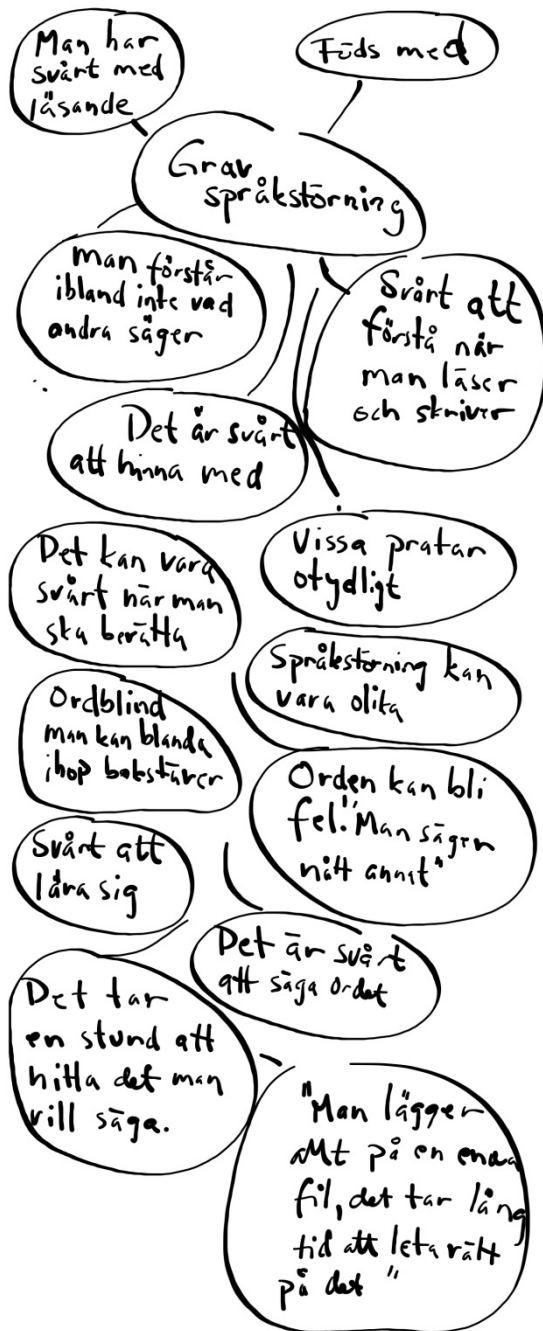 Man har
svårt med
läsande
Föds med
Grav
språkstörning
man förstår
ibland inte vad
andra säger
Svårt att
förstå när
man läser
och skriver
Det är svårt
att hinna med
Vissa pratar
otydligt
Det kan vara
svårt när man
ska berätta
Språkstörning kan
vara olika
Ordblind
man kan blanda
ihop bokstäver
Orden kan bli
fel. "Man säger
nått annat"
Svårt att
lära sig
Det är svårt
att säga ordet
Det tar
en stund att
hitta det man
vill säga.
"Man lägger
allt på en enda
fil, det tar lång
tid att leta rätt
på det"